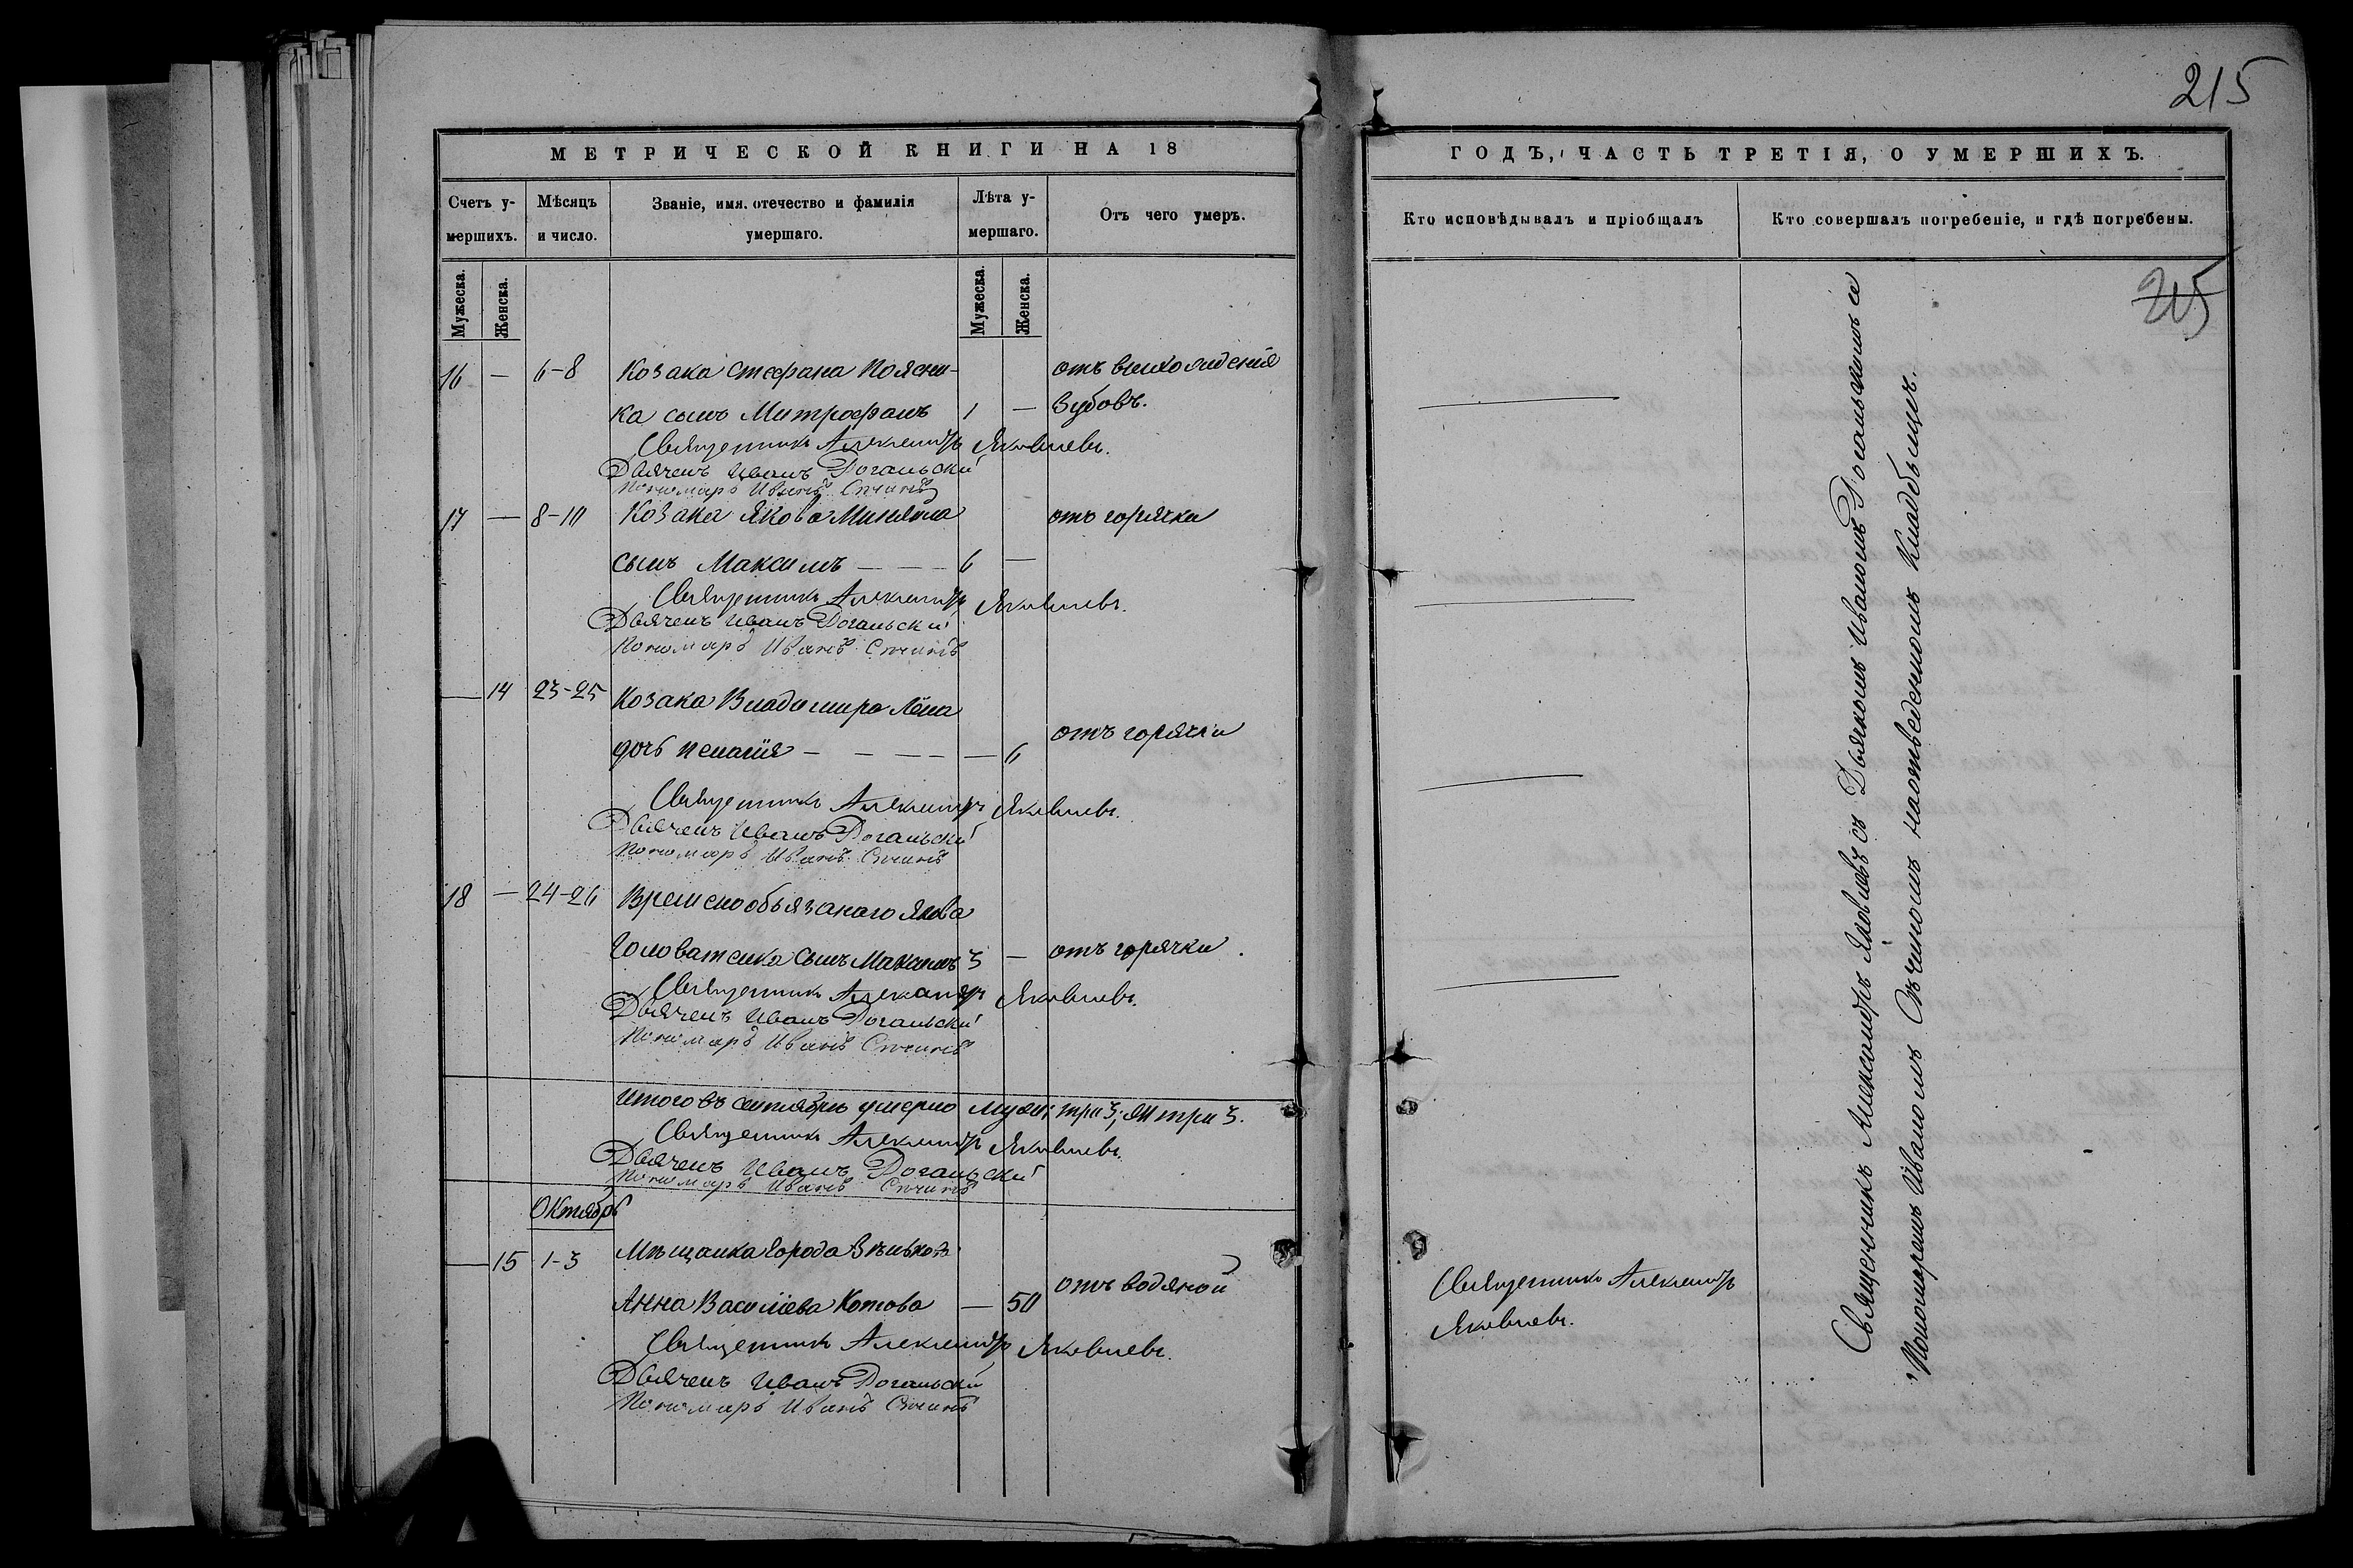 215
МЕТРИЧЕСКОЙ КНИГИ НА 18
ГОДЪ, ЧАСТЬ ТРЕТІЯ, О УМЕРШИХЪ.
Счетъ у-
мершихъ.
Мѣсяцъ
и число.
Званіе, имя, отечество и фамилія
умершаго.
Лѣта у-
мершаго.
Отъ чего умеръ.
Кто исповѣдывалъ и пріобщалъ
Кто совершалъ погребеніе, и гдѣ погребены.
Мужеска.
Женска.
Мужеска.
Женска.
215
16 — 6-8 Козака Стефана Поясни- отъ выхожденія
ка сынъ Митрофанъ 1 — зубовъ.
Священникъ Александръ Яковлевъ.
Дьячекъ Иванъ Рогальскій
Пономарь Иванъ Сѣчинъ
17 — 8-10 Козака Якова отъ горячки
сынъ Максимъ — — — 6 —
Священникъ Александръ Яковлевъ.
Дьячекъ Иванъ Рогальскій
Пономарь Иванъ Сѣчинъ
— 14 23-25 Козака Владимира
дочь Пелагія — — — — — 6 отъ горячки
Священникъ Александръ Яковлевъ.
Дьячекъ Иванъ Рогальскій
Пономарь Иванъ Сѣчинъ
18 — 24-26 Временообязанаго Якова
сынъ Максимъ 3 — отъ горячки.
Священникъ Александръ Яковлевъ.
Дьячекъ Иванъ Рогальскій
Пономарь Иванъ Сѣчинъ
Итого въ сентябрѣ умерло муж: три 3, ж: три 3.
Священникъ Александръ Яковлевъ.
Дьячекъ Иванъ Рогальскій
Пономарь Иванъ Сѣчинъ
Октябрь
— 15 1-3 Мѣщанка города Зѣнькова
Анна Василіева Котова — 50 отъ водяной
Священникъ Александръ Яковлевъ.
Дьячекъ Иванъ Рогальскій
Пономарь Иванъ Сѣчинъ
Священникъ Александръ
Яковлевъ.
Священникъ Александръ Яковлевъ съ Дьякомъ Иваномъ Рогальскимъ и
Пономаремъ Иваномъ Сѣчиномъ на отведенномъ кладбыщѣ.